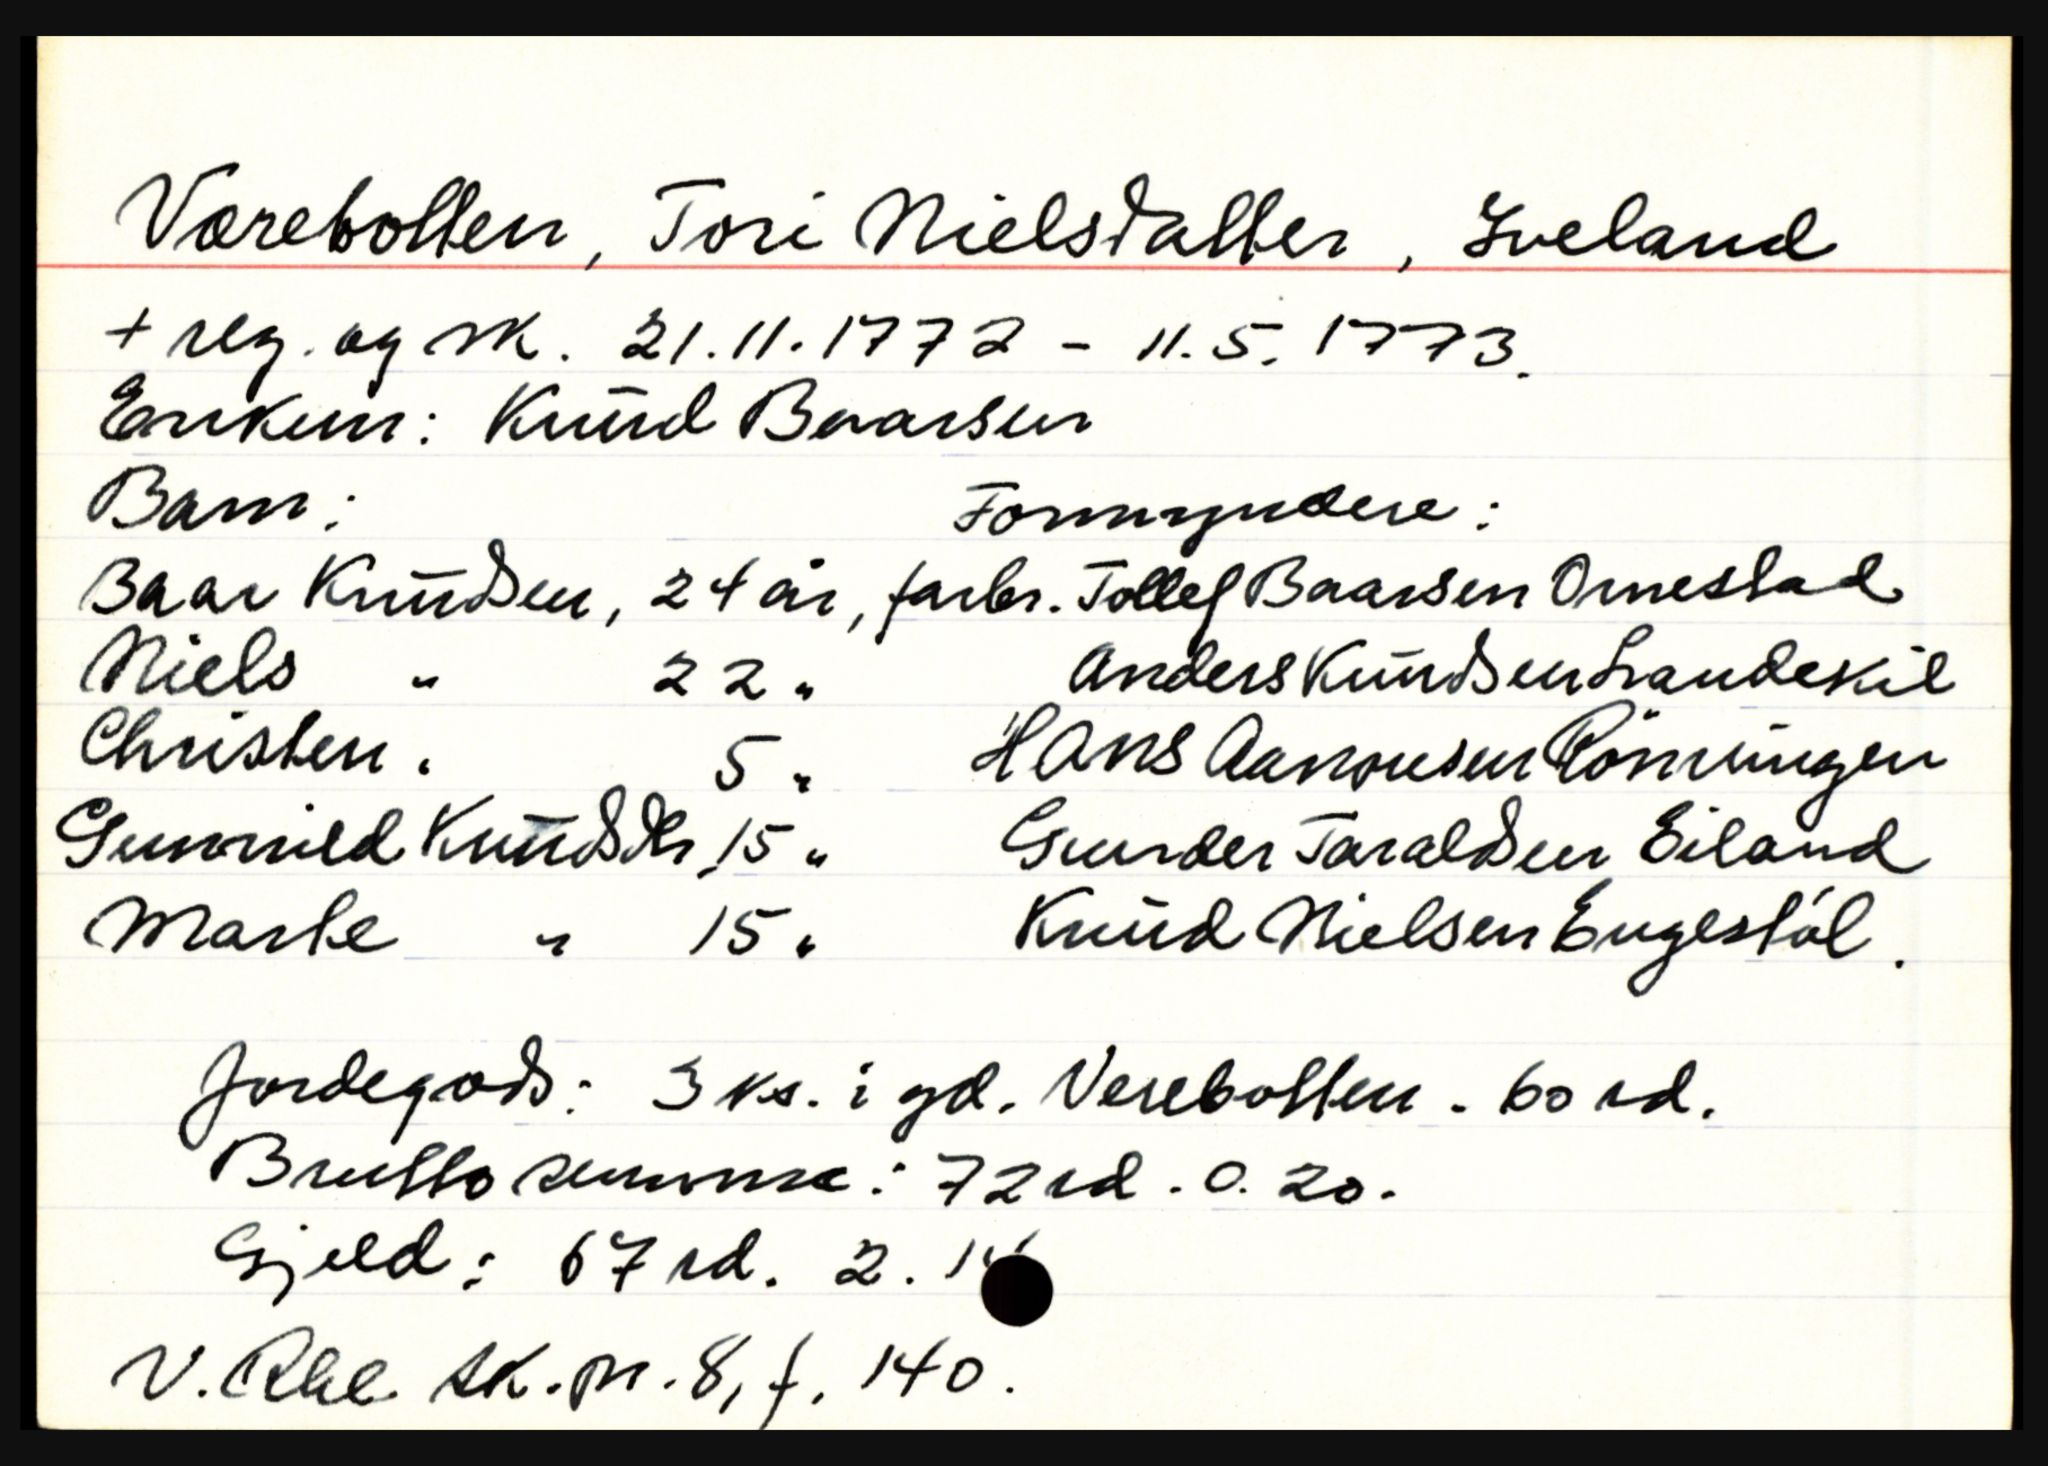 Værebotten, Tori Nielsdatter, Iveland
+ reg. og sk. 21.11.1772 - 11.5.1773.
Enkem: Knud Baarsen
Barn: Formyndere:
Baar Knudsen, 24 år, farbr. Tollef Baarsen Omestad
Niels " 22 " Anders Knudsen Landeskil
Christen " 5 " Hans Aanonsen Rönningen
Gunnild Knudsdtr, 15 " Gunder Taraldsen Eiland
Marte " 15 " Knud Nielsen Engestøl.
Jordegods: 3 ks. i gd. Verebotten. 60 rd.
Brutto summe: 72 rd. 0. 20.
Gjeld: 67 rd. 2.
V. Rbl. sk. pr. 8, f. 140.